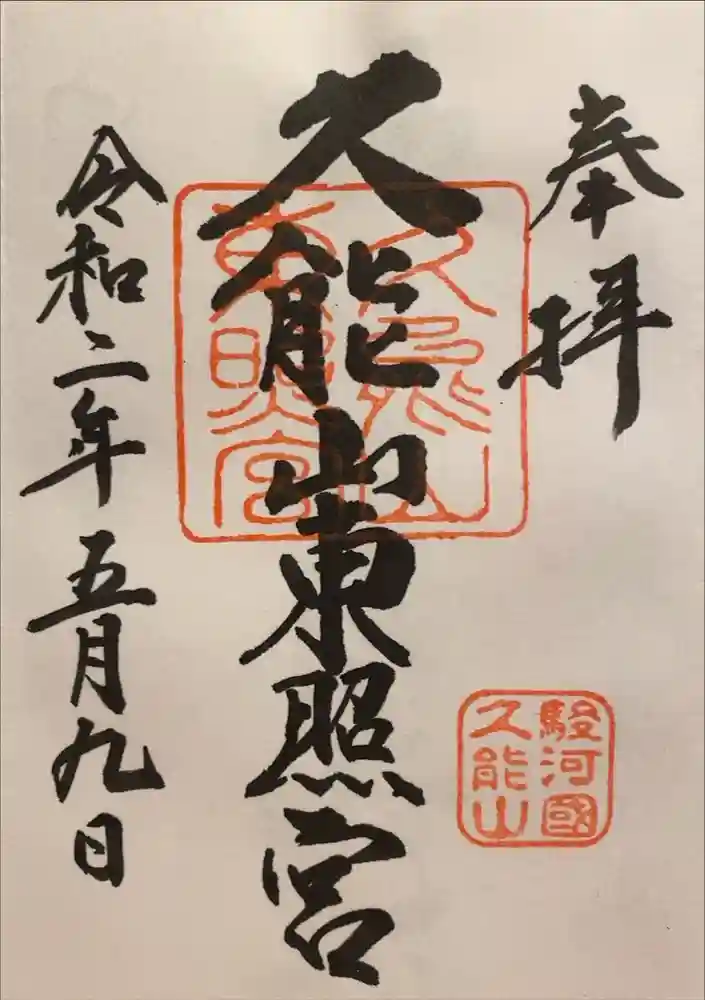 奉拝
久能山東照宮
令和二年五月九日
久能山
東照宮
駿河國
久能山